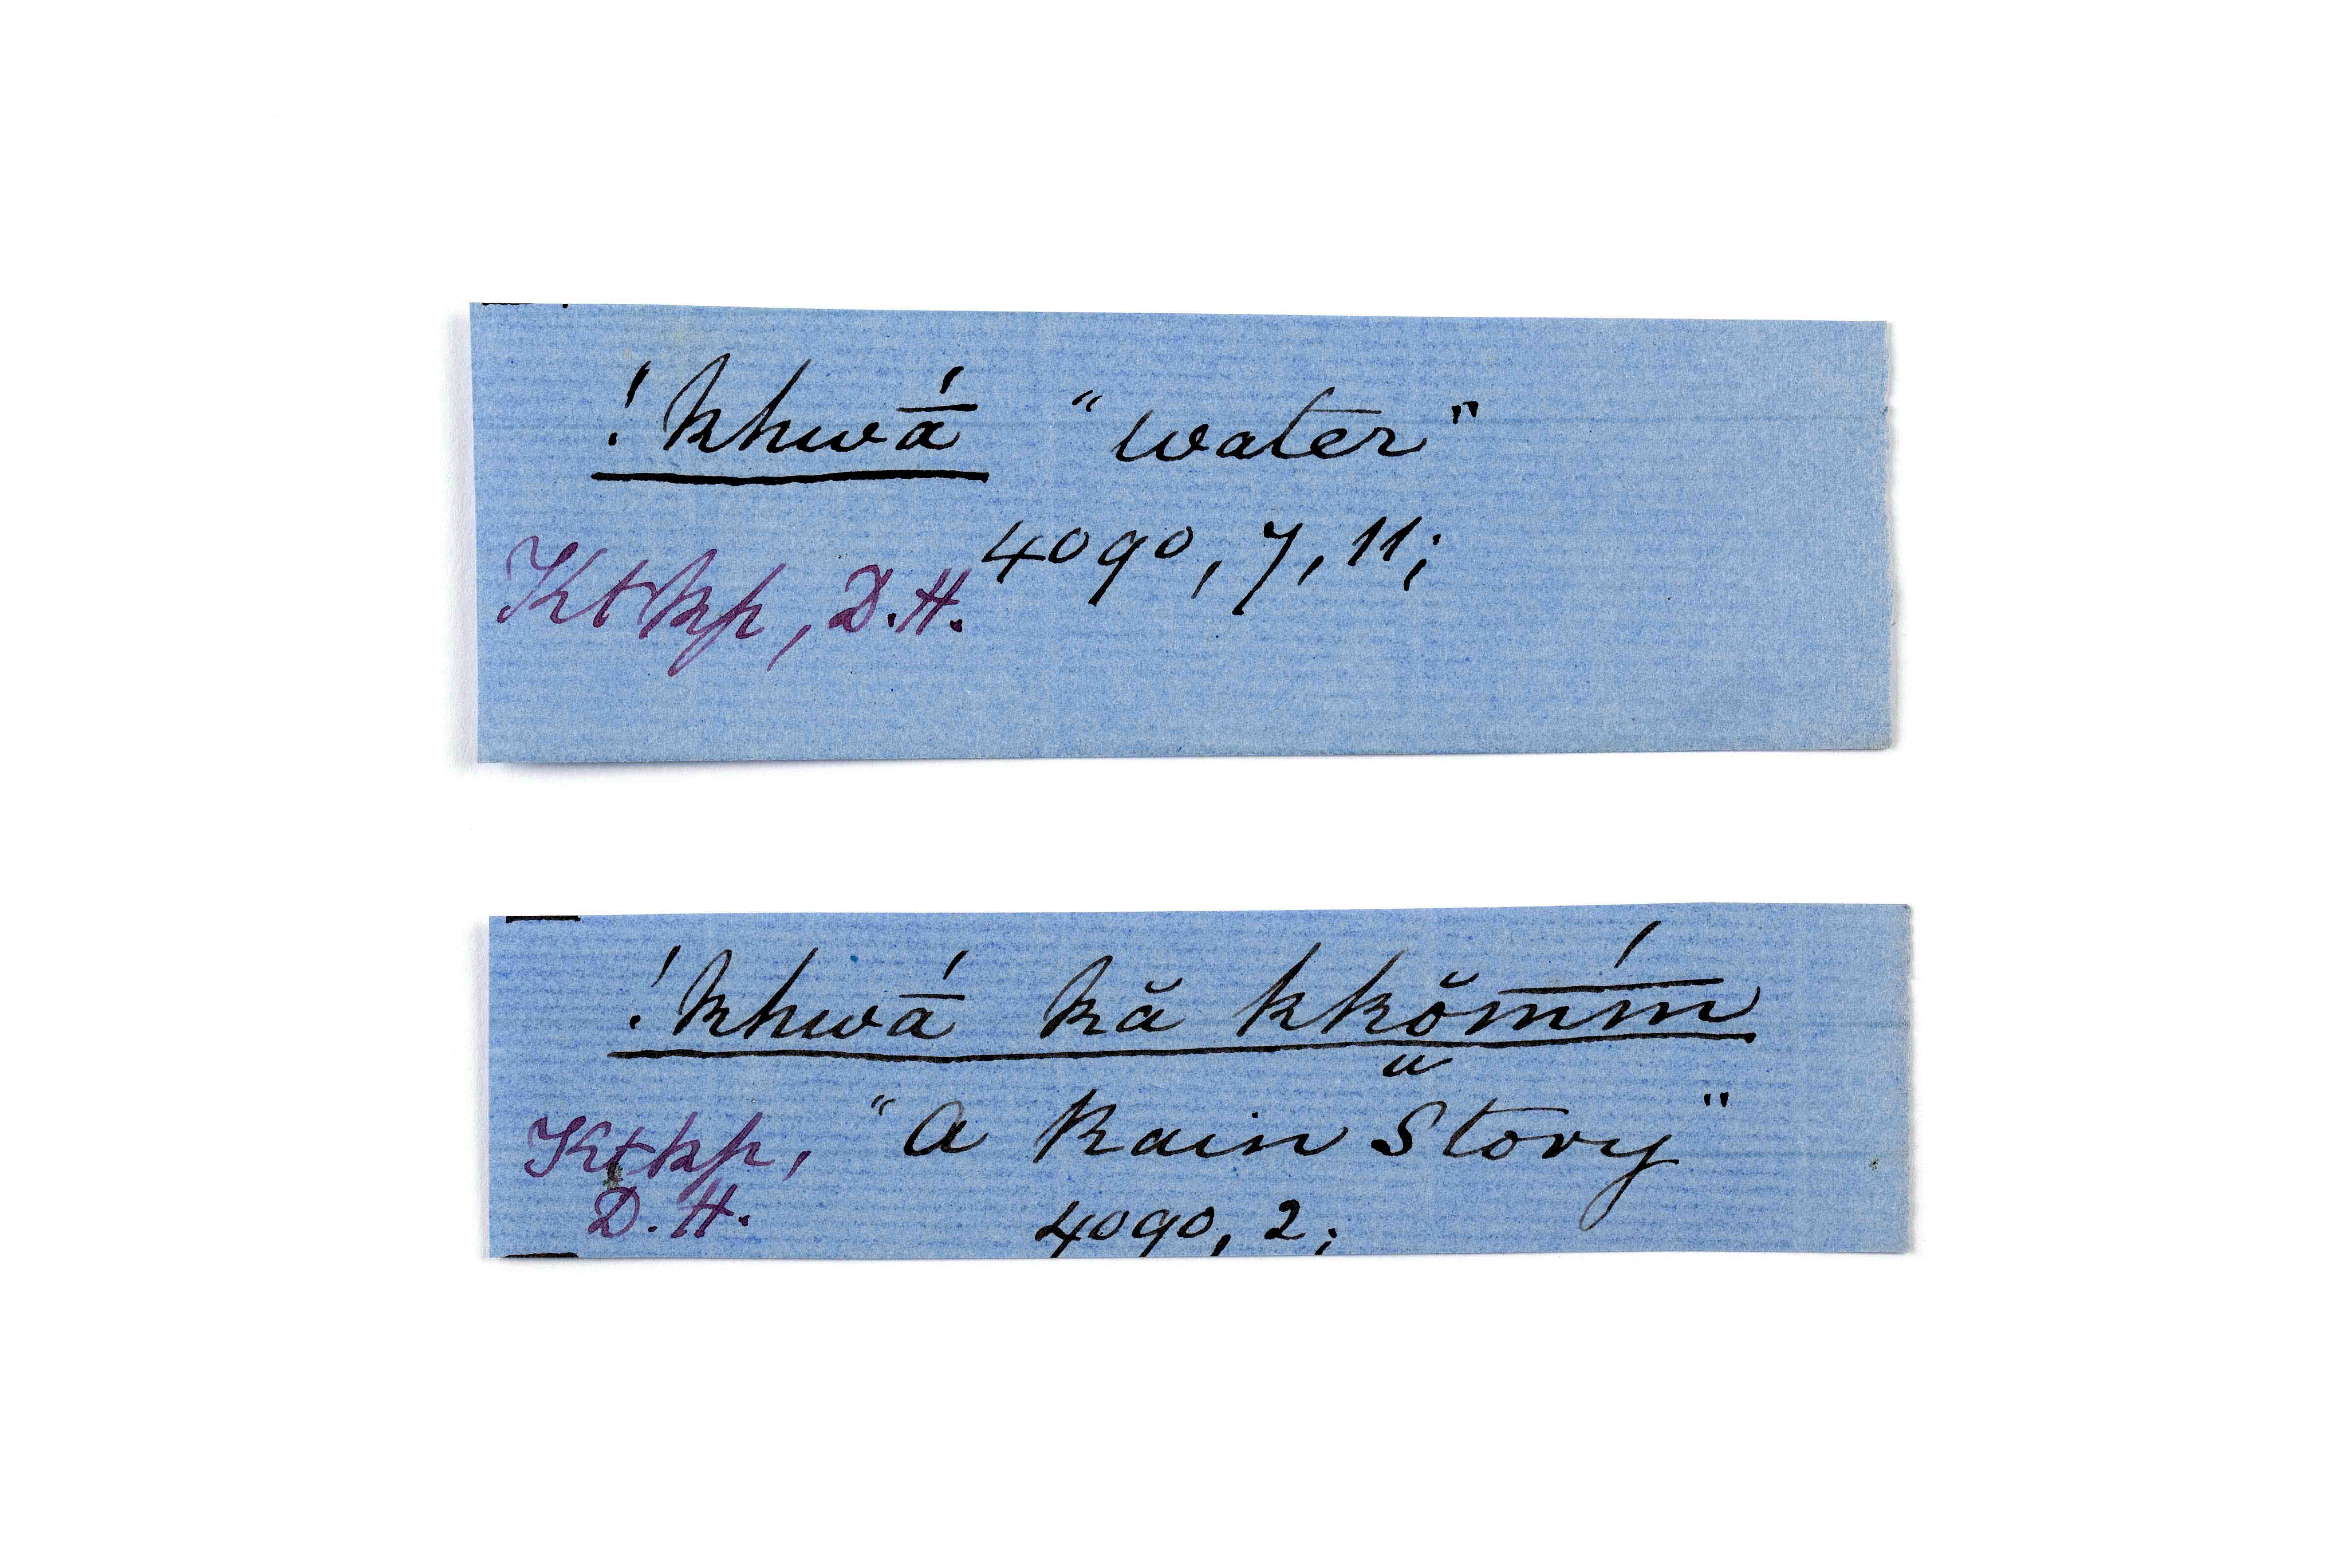 !khwā́ "water"
4090, 7, 11;
Ktkp, D.H.
!khwā́ kă kkŏm̄ḿ̄
u
"A Rain Story"
Ktkp,
D. H.
4090, 2;